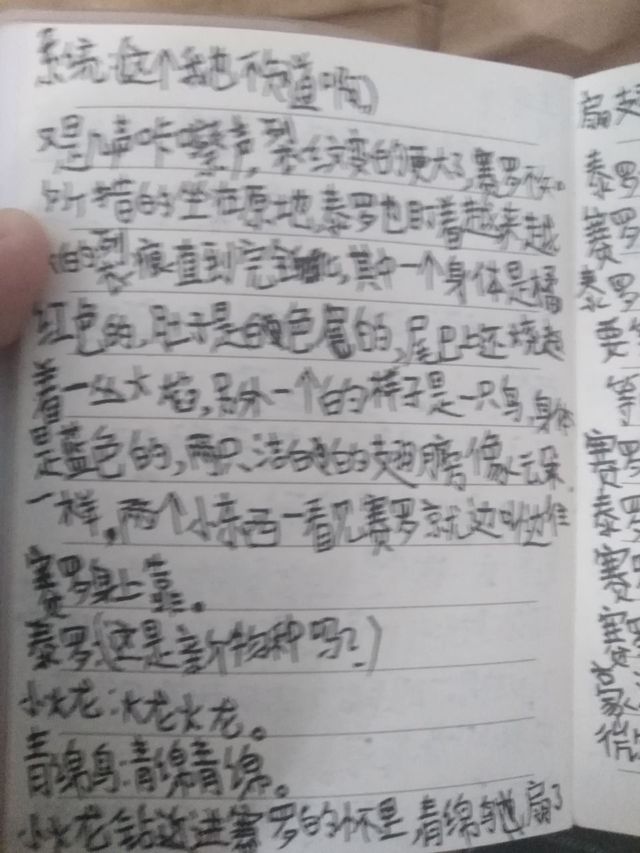 系统:这个我也不知道啊)
又是几声咔嚓声,裂纹变的更大了,赛罗不知
所措的坐在原地,泰罗也盯着越来越
大的裂痕直到完全孵化,其中一个身体是橘
红色的,肚子是白色尾的,尾巴上还烧起
着一丛火焰,另外一个的样子是一只鸟,身体
是蓝色的,两只洁白的翅膀像云朵
一样,两个小东西一看见赛罗就边叫边往
赛罗身上靠。
泰罗(这是新物种吗?)
小火龙:火龙火龙。
青绵鸟:青绵青绵。
小火龙钻进赛罗的怀里 青绵鸟也扇了
扇
泰罗
赛罗
泰罗
要
等
赛罗
泰罗
赛
赛罗